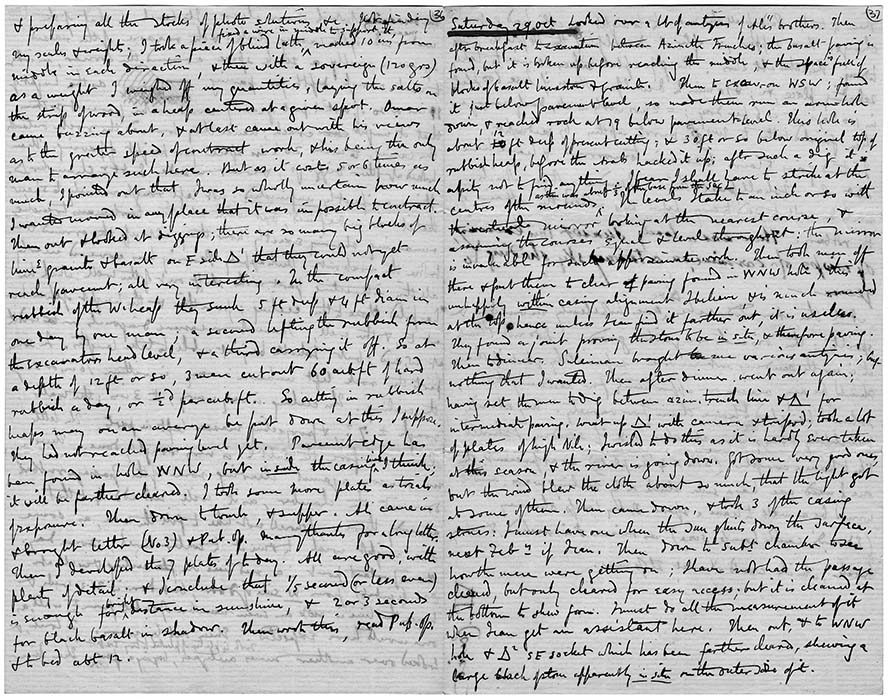 (36)
& preparing all the stocks of photo solutions &c. Not finding
fixed a wire in middle to support it
my scales & weights; I took a piece of blind lath, marked 10 ins from
middle in each direction, & then with a sovereign (120 grs)
as a weight I weighed off my quantities, laying the salts on
the strip of wood, in a heap centred at a given spot. Omar
came buzzing about, & at last came out with his views
as to the greater speed of contract work, & his being the only
man to arrange such here. But as it costs 5 or 6 times as
much, I pointed out that I was so wholly uncertain how much
I wanted moved in any place that it was impossible to contract.
Then out & looked at diggings; there are so many big blocks of
lime granite & basalt on E side Δ¹ that they could not yet
reach pavement; all very interesting. In the compact
rubbish of the W. heap they sunk 5 ft deep & 4 ft diam in
one day of one man, a second lifting the rubbish from
the excavators head level, & a third carrying it off. So at
a depth of 12 ft or so, 3 men cut out 60 cub ft of hard
rubbish a day, or ½d per cub ft. So cutting in rubbish
heaps may on an average be put down at this I suppose.
They had not reached paving level yet. Pavement edge has
been found in hole WNW, but inside the casing line I think;
it will be farther cleared. I took some more plates as trials
of exposure. Then down to tomb, & supper. Ali came in
& brought letter (No 3) & Pub. Op. many thanks for a long letter.
Then I developed the 7 plates of to day. All are good, with
plenty of detail, & I conclude that 1/5 second (or less even)
is enough for bright distance in sunshine, & 2 or 3 seconds
for black basalt in shadow. Then wrote this, read Pub. Ops,
& to bed abt 12.
(37)
Saturday 29 Oct Looked over a lot of antiques of Ali's brothers. Then
after breakfast to excavation between Azimuth Trenches; the basalt paving is
found, but it is broken up before reaching the middle, & the space full of
blocks of basalt limestone & granite. Then to excavn on WSW; found
it just below pavement level, so made them run an arm hole
down, & reached rock at 19 below pavement level. This hole is
about 12 ft deep of present cutting; & 30 ft or so below original top of
rubbish heap, before the Arabs hacked it up; after such a dig it is
aspity not to find anything. I fear I shall have to strike at the
centres of the mounds. The levels I take to an inch or so with
the mirror, looking at the nearest course, &
assuming the courses equal & level throughout; the mirror
is invaluable for such approximate work. Then took men off
there & put them to clear paving found in WNW hole; this is
unhappily within casing alignment I believe, & is much rounded
at the top, hence unless I can find it farther out, it is useless.
They found a joint proving the stone to be in situ, & therefore paving.
Then to dinner. Suleiman brought me various antiques; but
nothing that I wanted. Then after dinner went out again;
having set the men to dig between azim. trench line & Δ¹ for
intermediate paving. went up Δ¹ with camera & tripod; took a lot
of plates of high Nile; I wished to do this as it is hardly ever taken
at this season, & the river is going down. Got some very good ones,
but the wind blew the cloth about so much, that the light got
at some of them. Then came down, & took 3 of the casing
stones: I must have one when the sun glints down the surface,
next Feby if I can. Then down to subt chamber to see
how the men were getting on; I have not had the passage
cleared, but only cleared for easy access; but it is cleared at
the bottom to show form. I must do all the measurement of it
when I can get an assistant here. Then out, & to WNW
hole & Δ² SE socket which has been farther cleared, shewing a
large block of stone apparently in situ on the outer side of it.